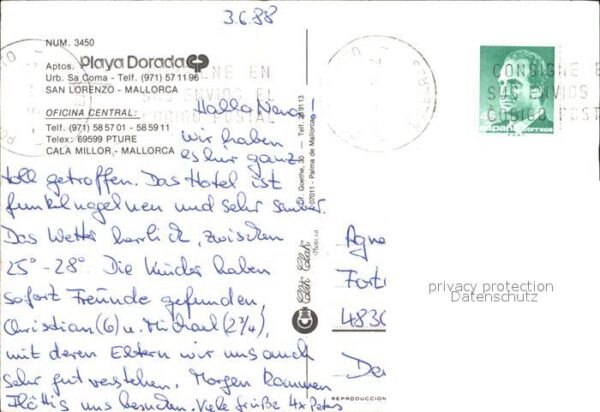 3.6.88
NUM. 3450
Aptos. Playa Dorada
Urb. Sa Coma - Telf. (971) 57 11 96
SAN LORENZO - MALLORCA
OFICINA CENTRAL:
Telf. (971) 58 57 01 - 58 59 11
Telex: 69599 PTURE
CALA MILLOR - MALLORCA
CONSIGNE EN
SUS ENVIOS EL
CODIGO POSTAL
Hallo Nena!
wir haben
es hier ganz
toll getroffen. Das Hotel ist
funkelnagelneu und sehr sauber.
Das Wetter herrlich, zwischen
25° - 28°. Die Kinder haben
sofort Freunde gefunden,
Christian (6) u. Michael (2 3/4),
mit deren Eltern wir uns auch
sehr gut verstehen. Morgen kommen
uns besuchen. Viele Grüße 4x Peters
Goethe, 30 - Telf. 28 91 13
07011 - Palma de Mallorca
Clik Clak
REPRODUCCION
CONSIGNE E
SUS ENVIOS
CODIGO POSTA
España correos
Agne
Forts
4830
De
privacy protection
Datenschutz